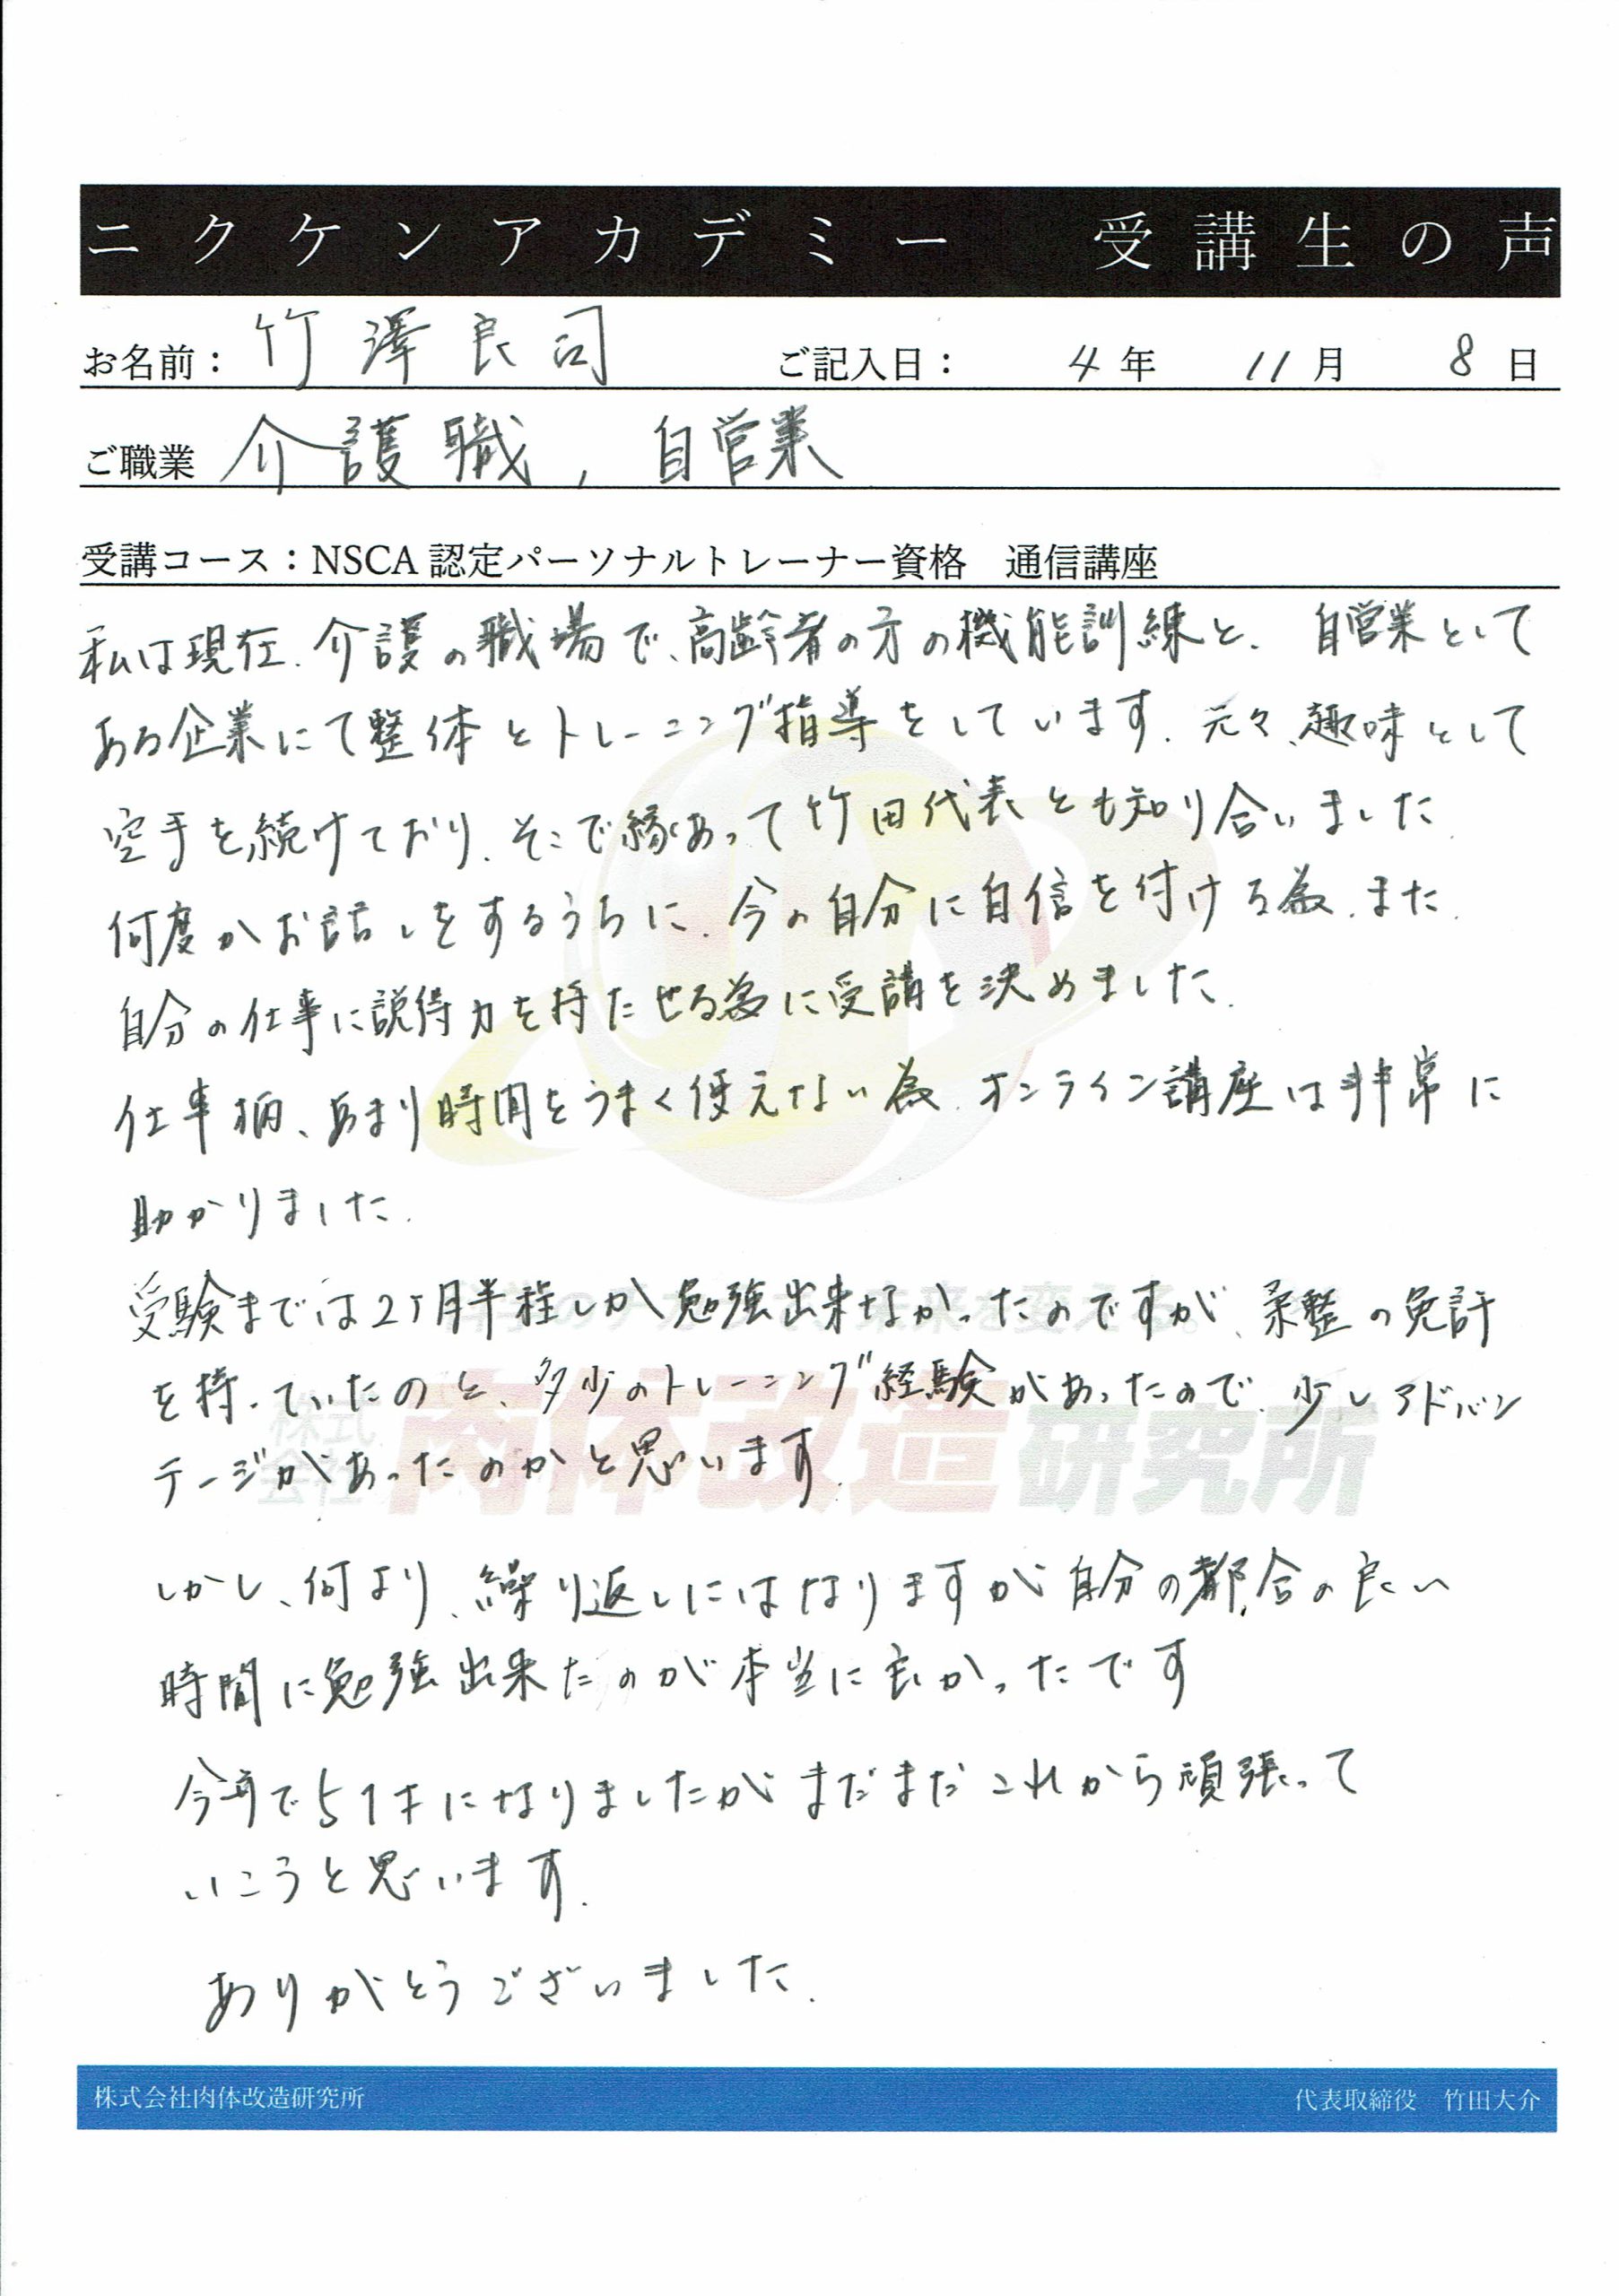 ニクケンアカデミー　受講生の声
お名前： 竹澤良司　ご記入日： 4年 11月 8日
ご職業 介護職, 自営業
受講コース：NSCA 認定パーソナルトレーナー資格　通信講座
私は現在、介護の職場で、高齢者の方の機能訓練と、自営業として
ある企業にて整体とトレーニング指導をしています。元々、趣味として
空手を続けており、そこで縁あって竹田代表とも知り合いました。
何度かお話しをするうちに、今の自分に自信を付ける為、また、
自分の仕事に説得力を持たせる為に受講を決めました。
仕事柄、あまり時間をうまく使えない為、オンライン講座は非常に
助かりました。
受験までは2ヶ月半程しか勉強出来なかったのですが、柔整の免許
を持っていたのと、多少のトレーニング経験があったので、少しアドバン
テージがあったのかと思います。
しかし、何より、繰り返しにはなりますが自分の都合の良い
時間に勉強出来たのが本当に良かったです
今年で51才になりましたがまだまだこれから頑張って
いこうと思います。
ありがとうございました。
科学のチカラで、未来を変える。
株式会社 肉体改造研究所
株式会社肉体改造研究所　代表取締役　竹田大介